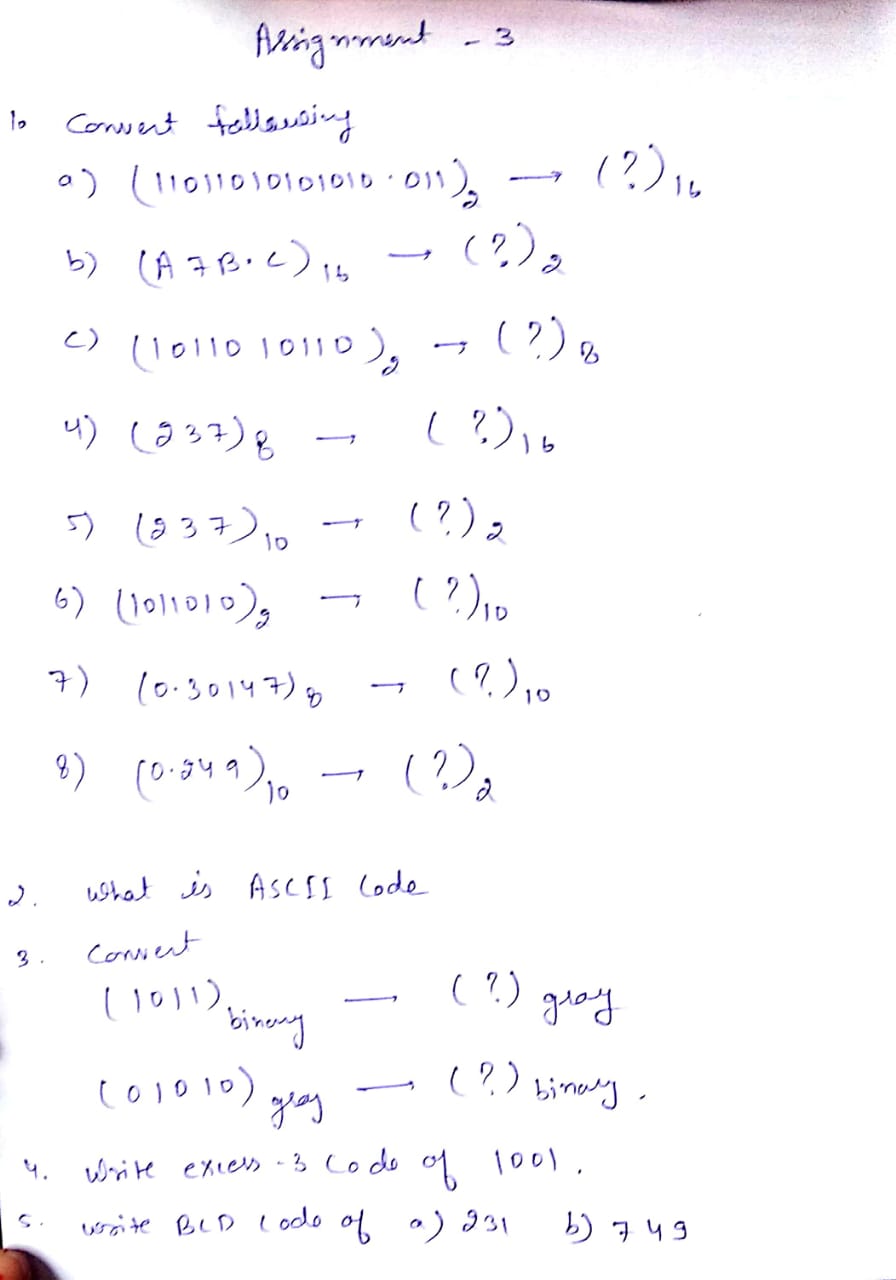 Assignment - 3
1. Convert following
a) (1101101010101010.011)₂ → (?)₁₆
b) (A7B.C)₁₆ → (?)₂
c) (1011010110)₂ → (?)₈
4) (237)₈ → (?)₁₆
5) (237)₁₀ → (?)₂
6) (1011010)₂ → (?)₁₀
7) (0.30147)₈ → (?)₁₀
8) (0.249)₁₀ → (?)₂
2. What is ASCII Code
3. Convert
(1011)binary → (?) gray
(01010) gray → (?) binary.
4. Write excess-3 Code of 1001.
5. write BCD Code of a) 231 b) 749